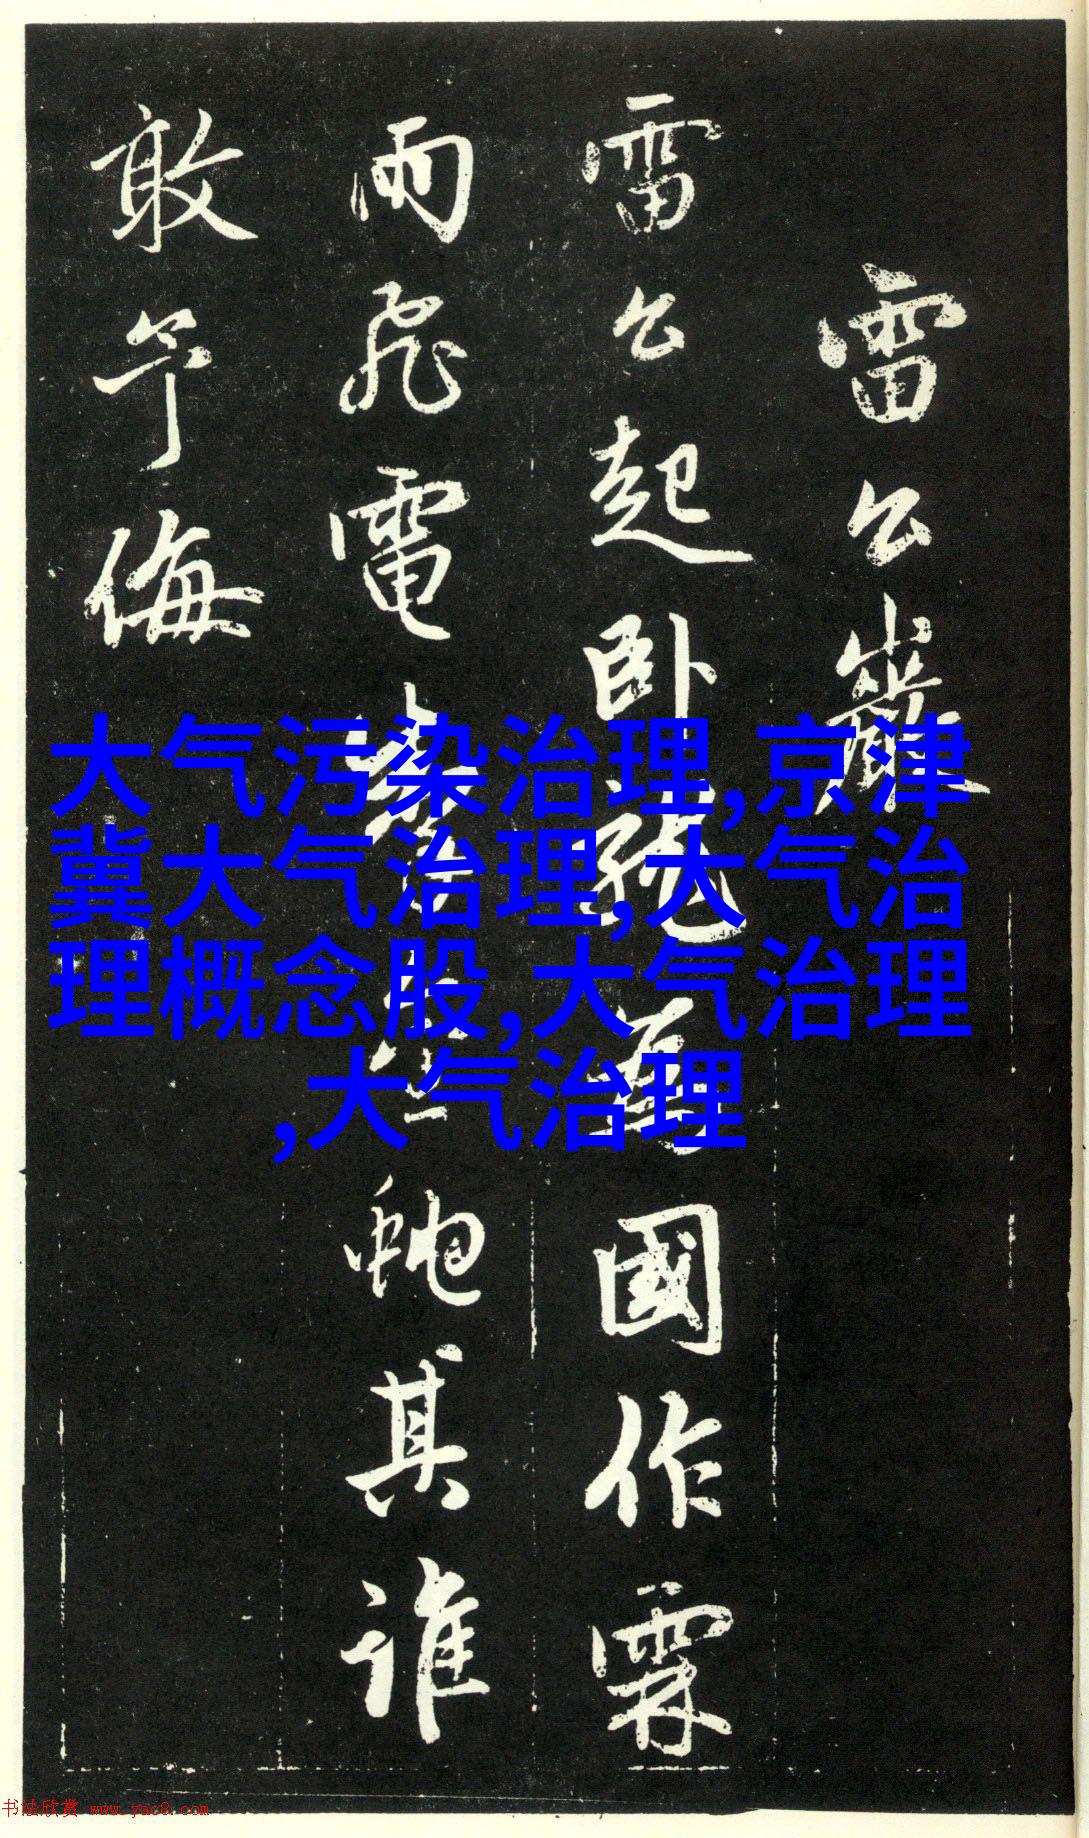 雷公巖
雷公起卧龍為國作霖
雨飛電掣金蛇其誰
敢予侮
大气污染治理,京津
冀大气治理,大气治
理概念股,大气治理
,大气治理
书法欣赏 www.yac8.com